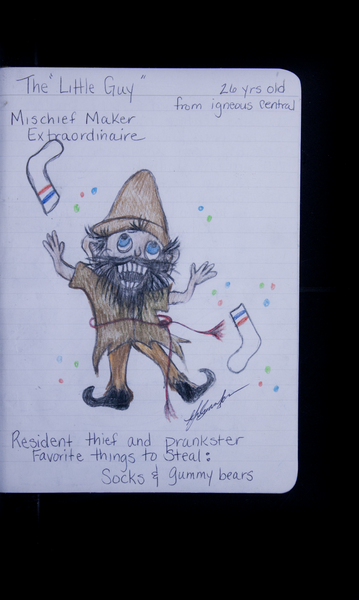 The "Little Guy"
26 yrs old
from igneous Central
Mischief Maker
Extraordinaire
Resident thief and prankster
Favorite things to Steal:
Socks & gummy bears